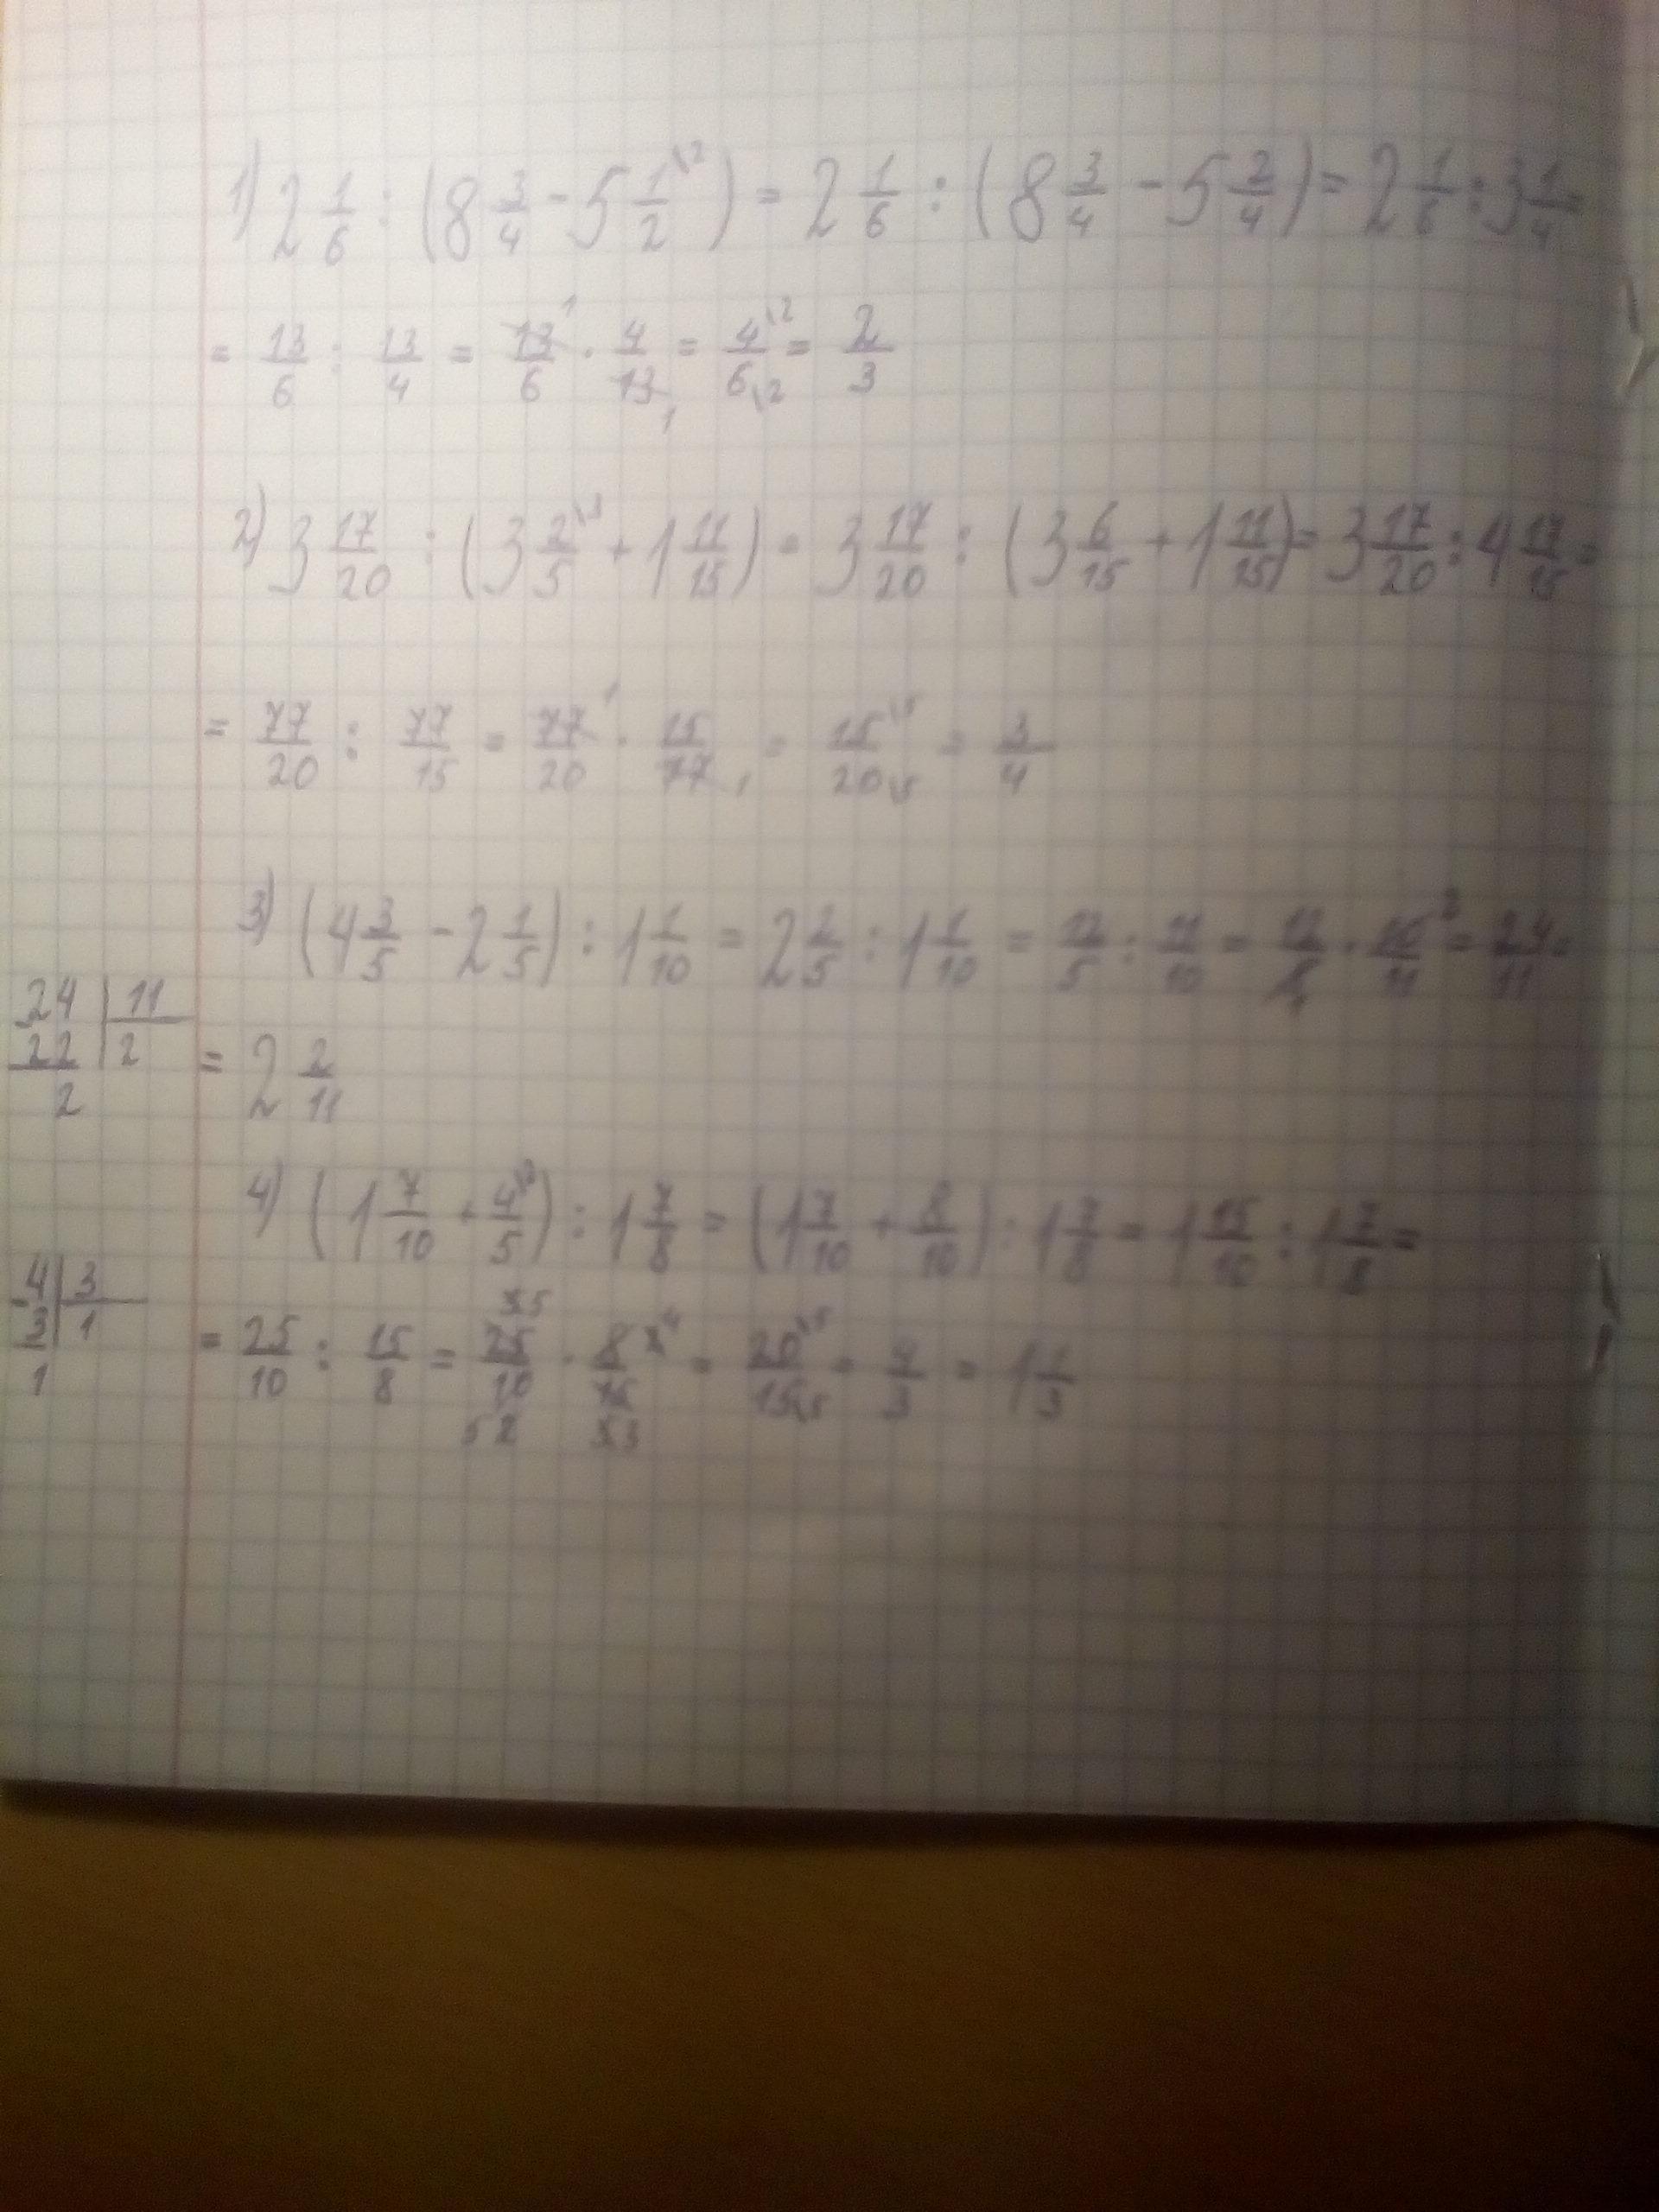 1) 2 1/6 : (8 3/4 - 5 1/2 \2) = 2 1/6 : (8 3/4 - 5 2/4) = 2 1/6 : 3 1/4 =
= 13/6 : 13/4 = 13/6 · 4/13 = 4/6 = 2/3
2) 3 17/20 : (3 2/5 \3 + 1 11/15) = 3 17/20 : (3 6/15 + 1 11/15) = 3 17/20 : 4 17/15 =
= 77/20 : 77/15 = 77/20 · 15/77 = 15/20 = 3/4
3) (4 3/5 - 2 1/5) : 1 1/10 = 2 2/5 : 1 1/10 = 12/5 : 11/10 = 12/5 · 10/11 = 24/11 =
24 | 11
22 | 2
2
= 2 2/11
4) (1 7/10 + 4/5 \2) : 1 7/8 = (1 7/10 + 8/10) : 1 7/8 = 1 15/10 : 1 7/8 =
4 | 3
3 | 1
1
= 25/10 : 15/8 = 25/10 · 8/15 = 20/15 = 4/3 = 1 1/3